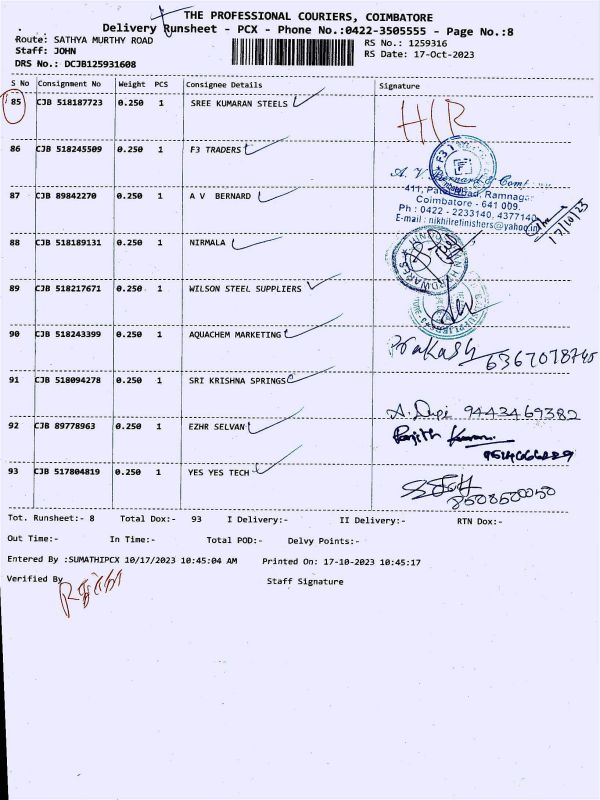 THE PROFESSIONAL COURIERS, COIMBATORE
Delivery Runsheet - PCX - Phone No.:0422-3505555 - Page No.:8
Route: SATHYA MURTHY ROAD
RS No.: 1259316
Staff: JOHN
RS Date: 17-Oct-2023
DRS No.: DCJB125931608
S No Consignment No Weight PCS Consignee Details Signature
85 CJB 518187723 0.250 1 SREE KUMARAN STEELS
86 CJB 518245509 0.250 1 F3 TRADERS
A. V. Bernard & Company
411, Patel Road, Ramnagar
87 CJB 89842270 0.250 1 A V BERNARD
Coimbatore - 641 009.
Ph : 0422 - 2233140, 4377140
E-mail : nikhilrefinishers@yahoo.in
17/10/23
88 CJB 518189131 0.250 1 NIRMALA
89 CJB 518217671 0.250 1 WILSON STEEL SUPPLIERS
90 CJB 518243399 0.250 1 AQUACHEM MARKETING
Prakash
91 CJB 518094278 0.250 1 SRI KRISHNA SPRINGS
9443469382
92 CJB 89778963 0.250 1 EZHR SELVAN
Ranjith Kumar
93 CJB 517804819 0.250 1 YES YES TECH
Tot. Runsheet:- 8 Total Dox:- 93 I Delivery:- II Delivery:- RTN Dox:-
Out Time:- In Time:- Total POD:- Delvy Points:-
Entered By :SUMATHIPCX 10/17/2023 10:45:04 AM Printed On: 17-10-2023 10:45:17
Verified By Staff Signature